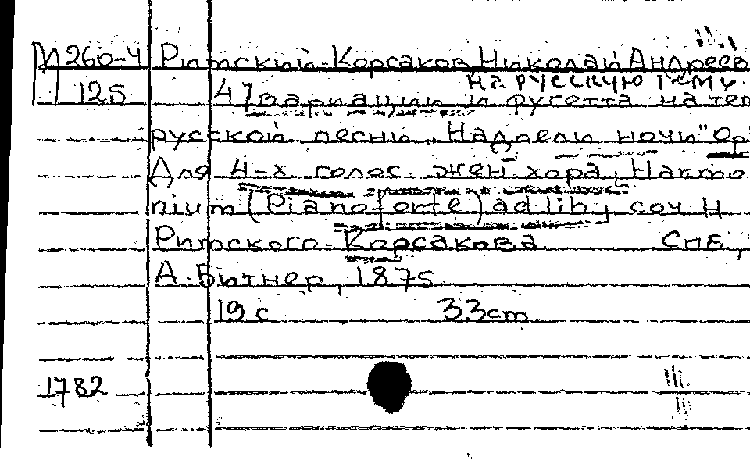 М260-4 Римский-Корсаков Николай Андреев
на русскую тему.
125 4 Вариации и фугетта на тем
русской песни "Надоели ночи" Ор
Для 4-х голос. жен хора, Harmo
nium (Pianoforte) ad lib, соч Н
Римского-Корсакова СПБ,
А. Битнер, 1875
19 с 33cm
1782